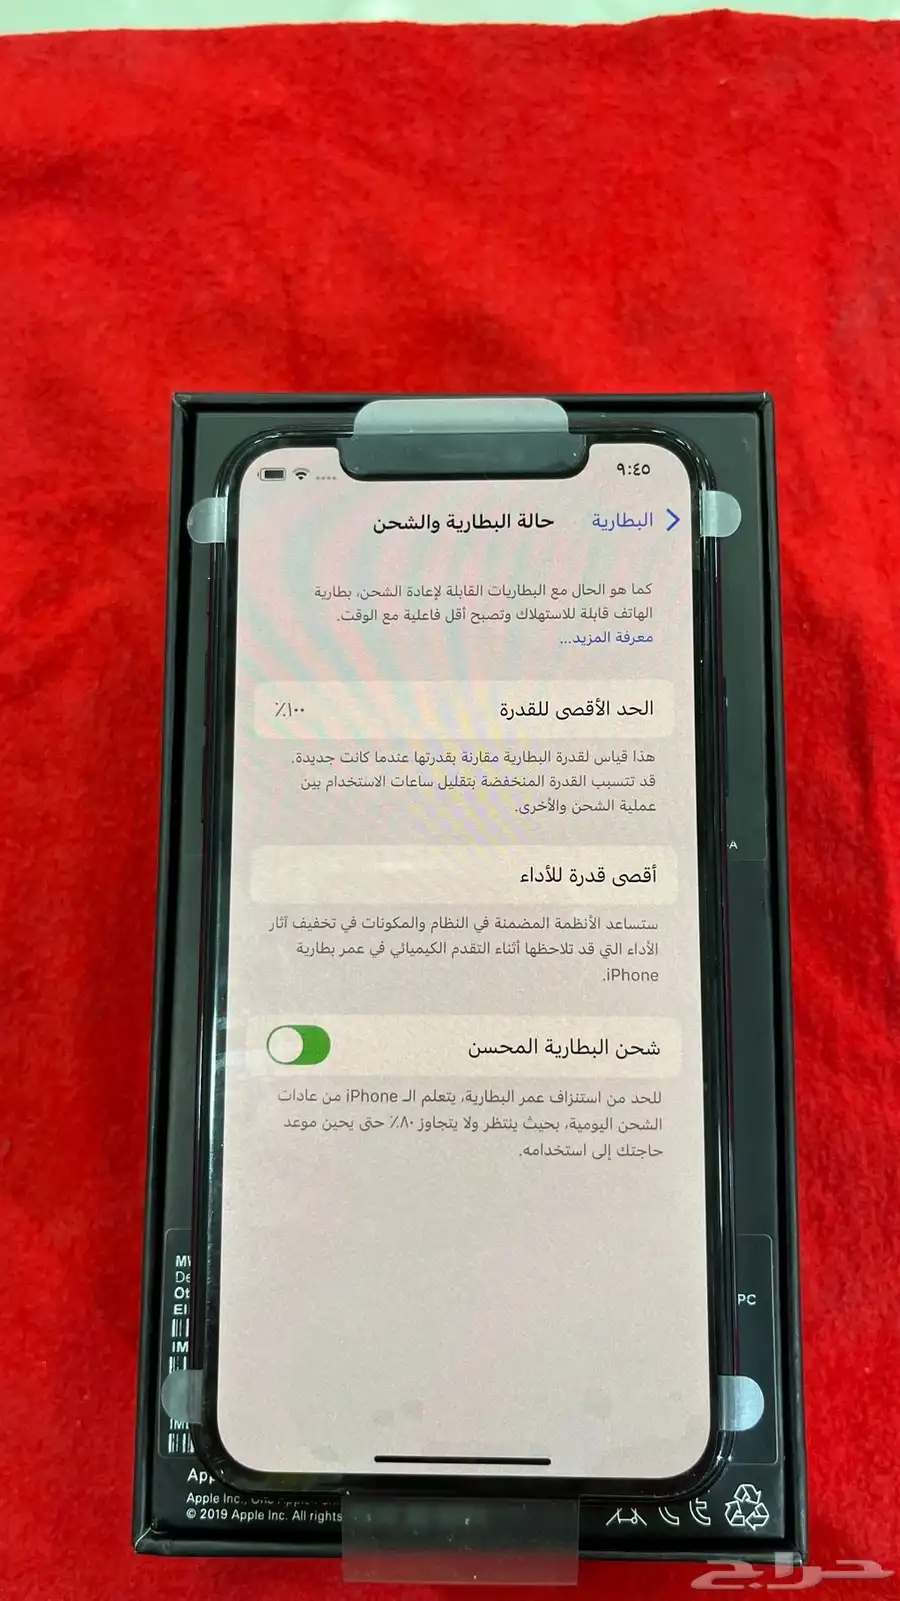 ٩:٤٥
البطارية
حالة البطارية والشحن
كما هو الحال مع البطاريات القابلة لإعادة الشحن، بطارية
الهاتف قابلة للاستهلاك وتصبح أقل فاعلية مع الوقت.
معرفة المزيد...
الحد الأقصى للقدرة
١٠٠٪
هذا قياس لقدرة البطارية مقارنة بقدرتها عندما كانت جديدة.
قد تتسبب القدرة المنخفضة بتقليل ساعات الاستخدام بين
عملية الشحن والأخرى.
أقصى قدرة للأداء
ستساعد الأنظمة المضمنة في النظام والمكونات في تخفيف آثار
الأداء التي قد تلاحظها أثناء التقدم الكيميائي في عمر بطارية
iPhone.
شحن البطارية المحسن
للحد من استنزاف عمر البطارية، يتعلم الـ iPhone من عادات
الشحن اليومية، بحيث ينتظر ولا يتجاوز ٨٠٪ حتى يحين موعد
حاجتك إلى استخدامه.
PC
Apple Inc., One Apple
© 2019 Apple Inc. All rights
حراج